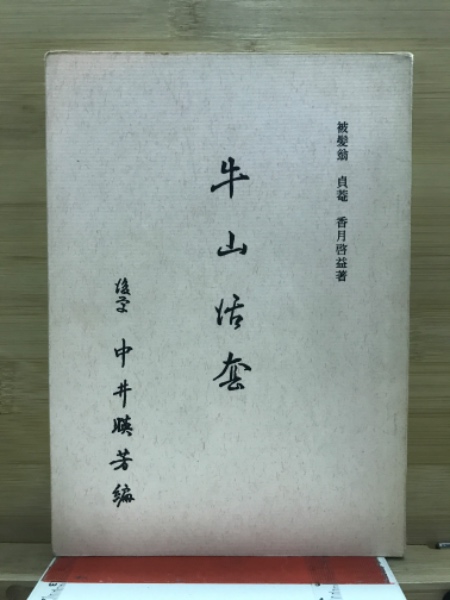 被髮翁　貞菴　香月啓益著
牛山活套
後学　中井暎芳編